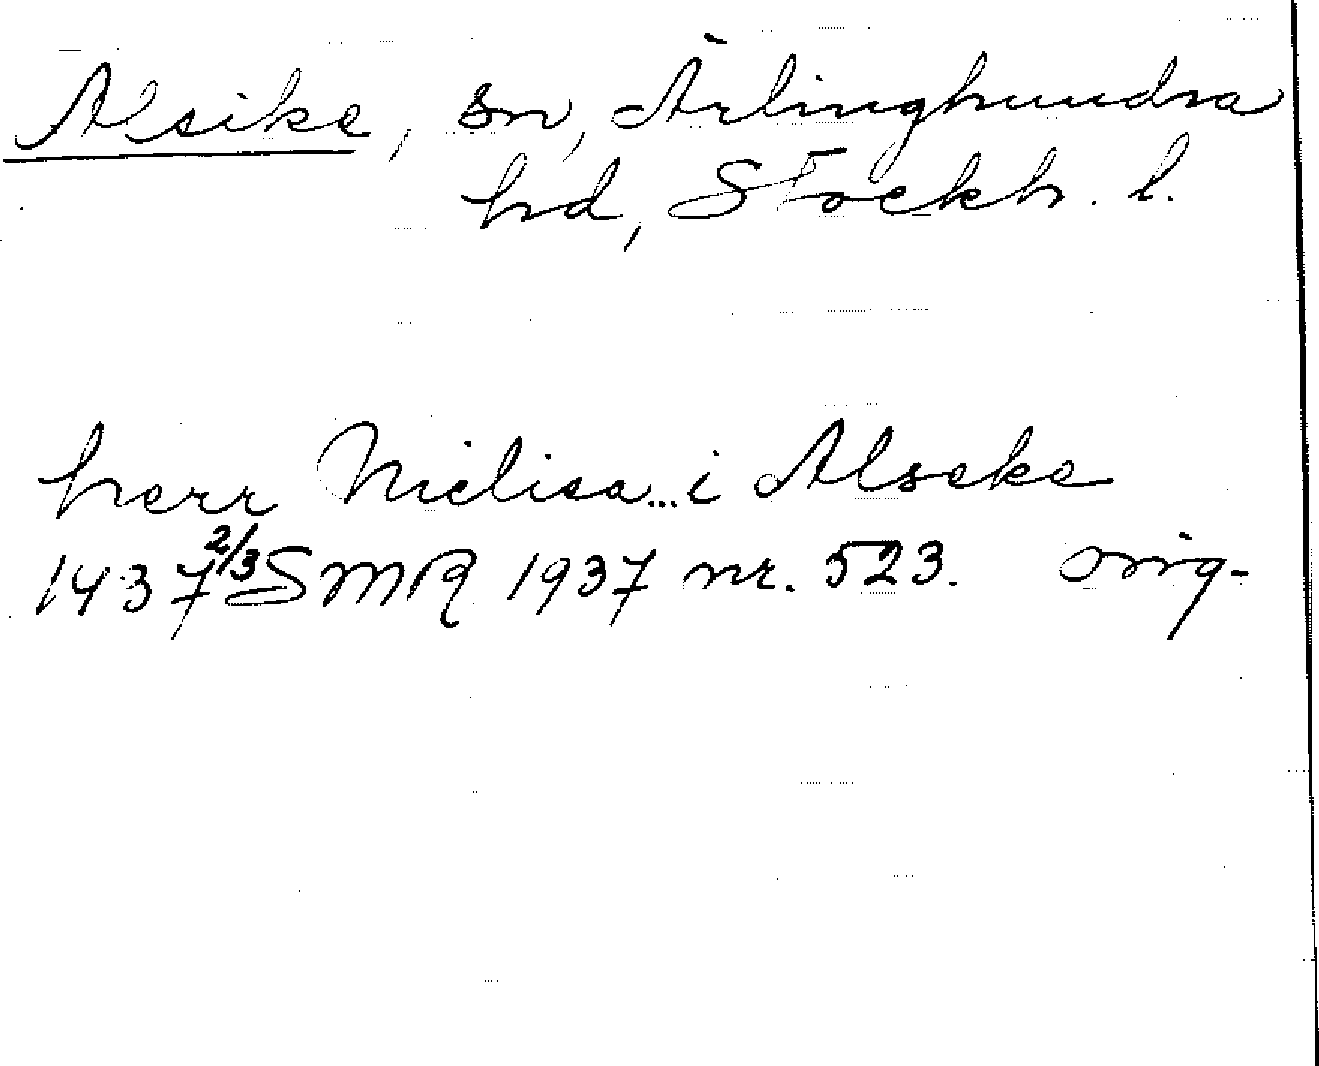 Alsike, sn, Ärlinghundra
hd, Stockh. l.
herr Niclisa... i Alseke
1437 2/3 SMR 1937 nr. 523. orig-